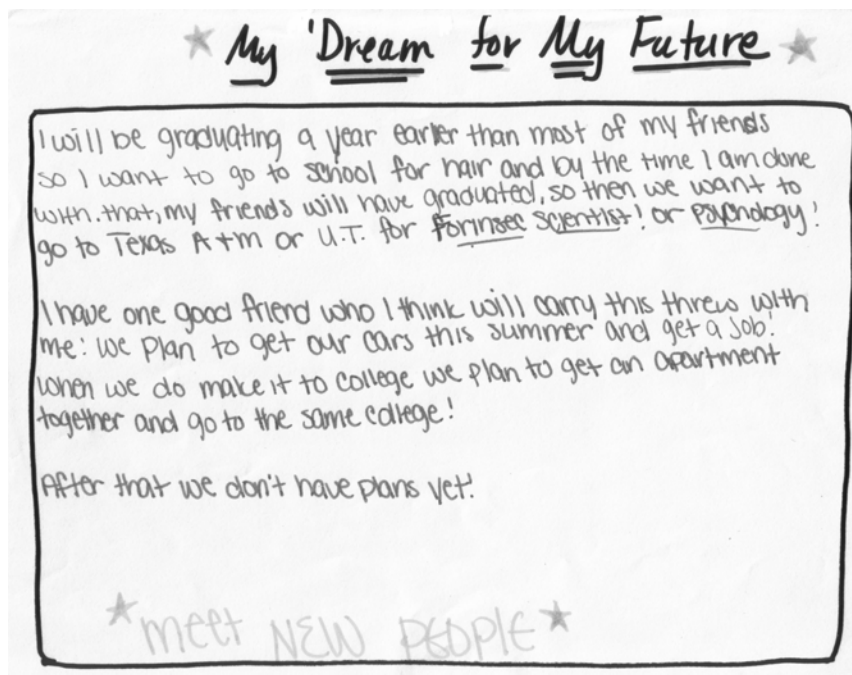 My Dream for My Future
I will be graduating a year earlier than most of my friends
so I want to go to school for hair and by the time I am done
with that, my friends will have graduated, so then we want to
go to Texas A+m or U.T. for Forinsec Scientist! or Psychology!
I have one good friend who I think will carry this threw with
me: we plan to get our cars this summer and get a job!
when we do make it to college we plan to get an apartment
together and go to the same college!
After that we don't have plans yet!
meet NEW PEOPLE